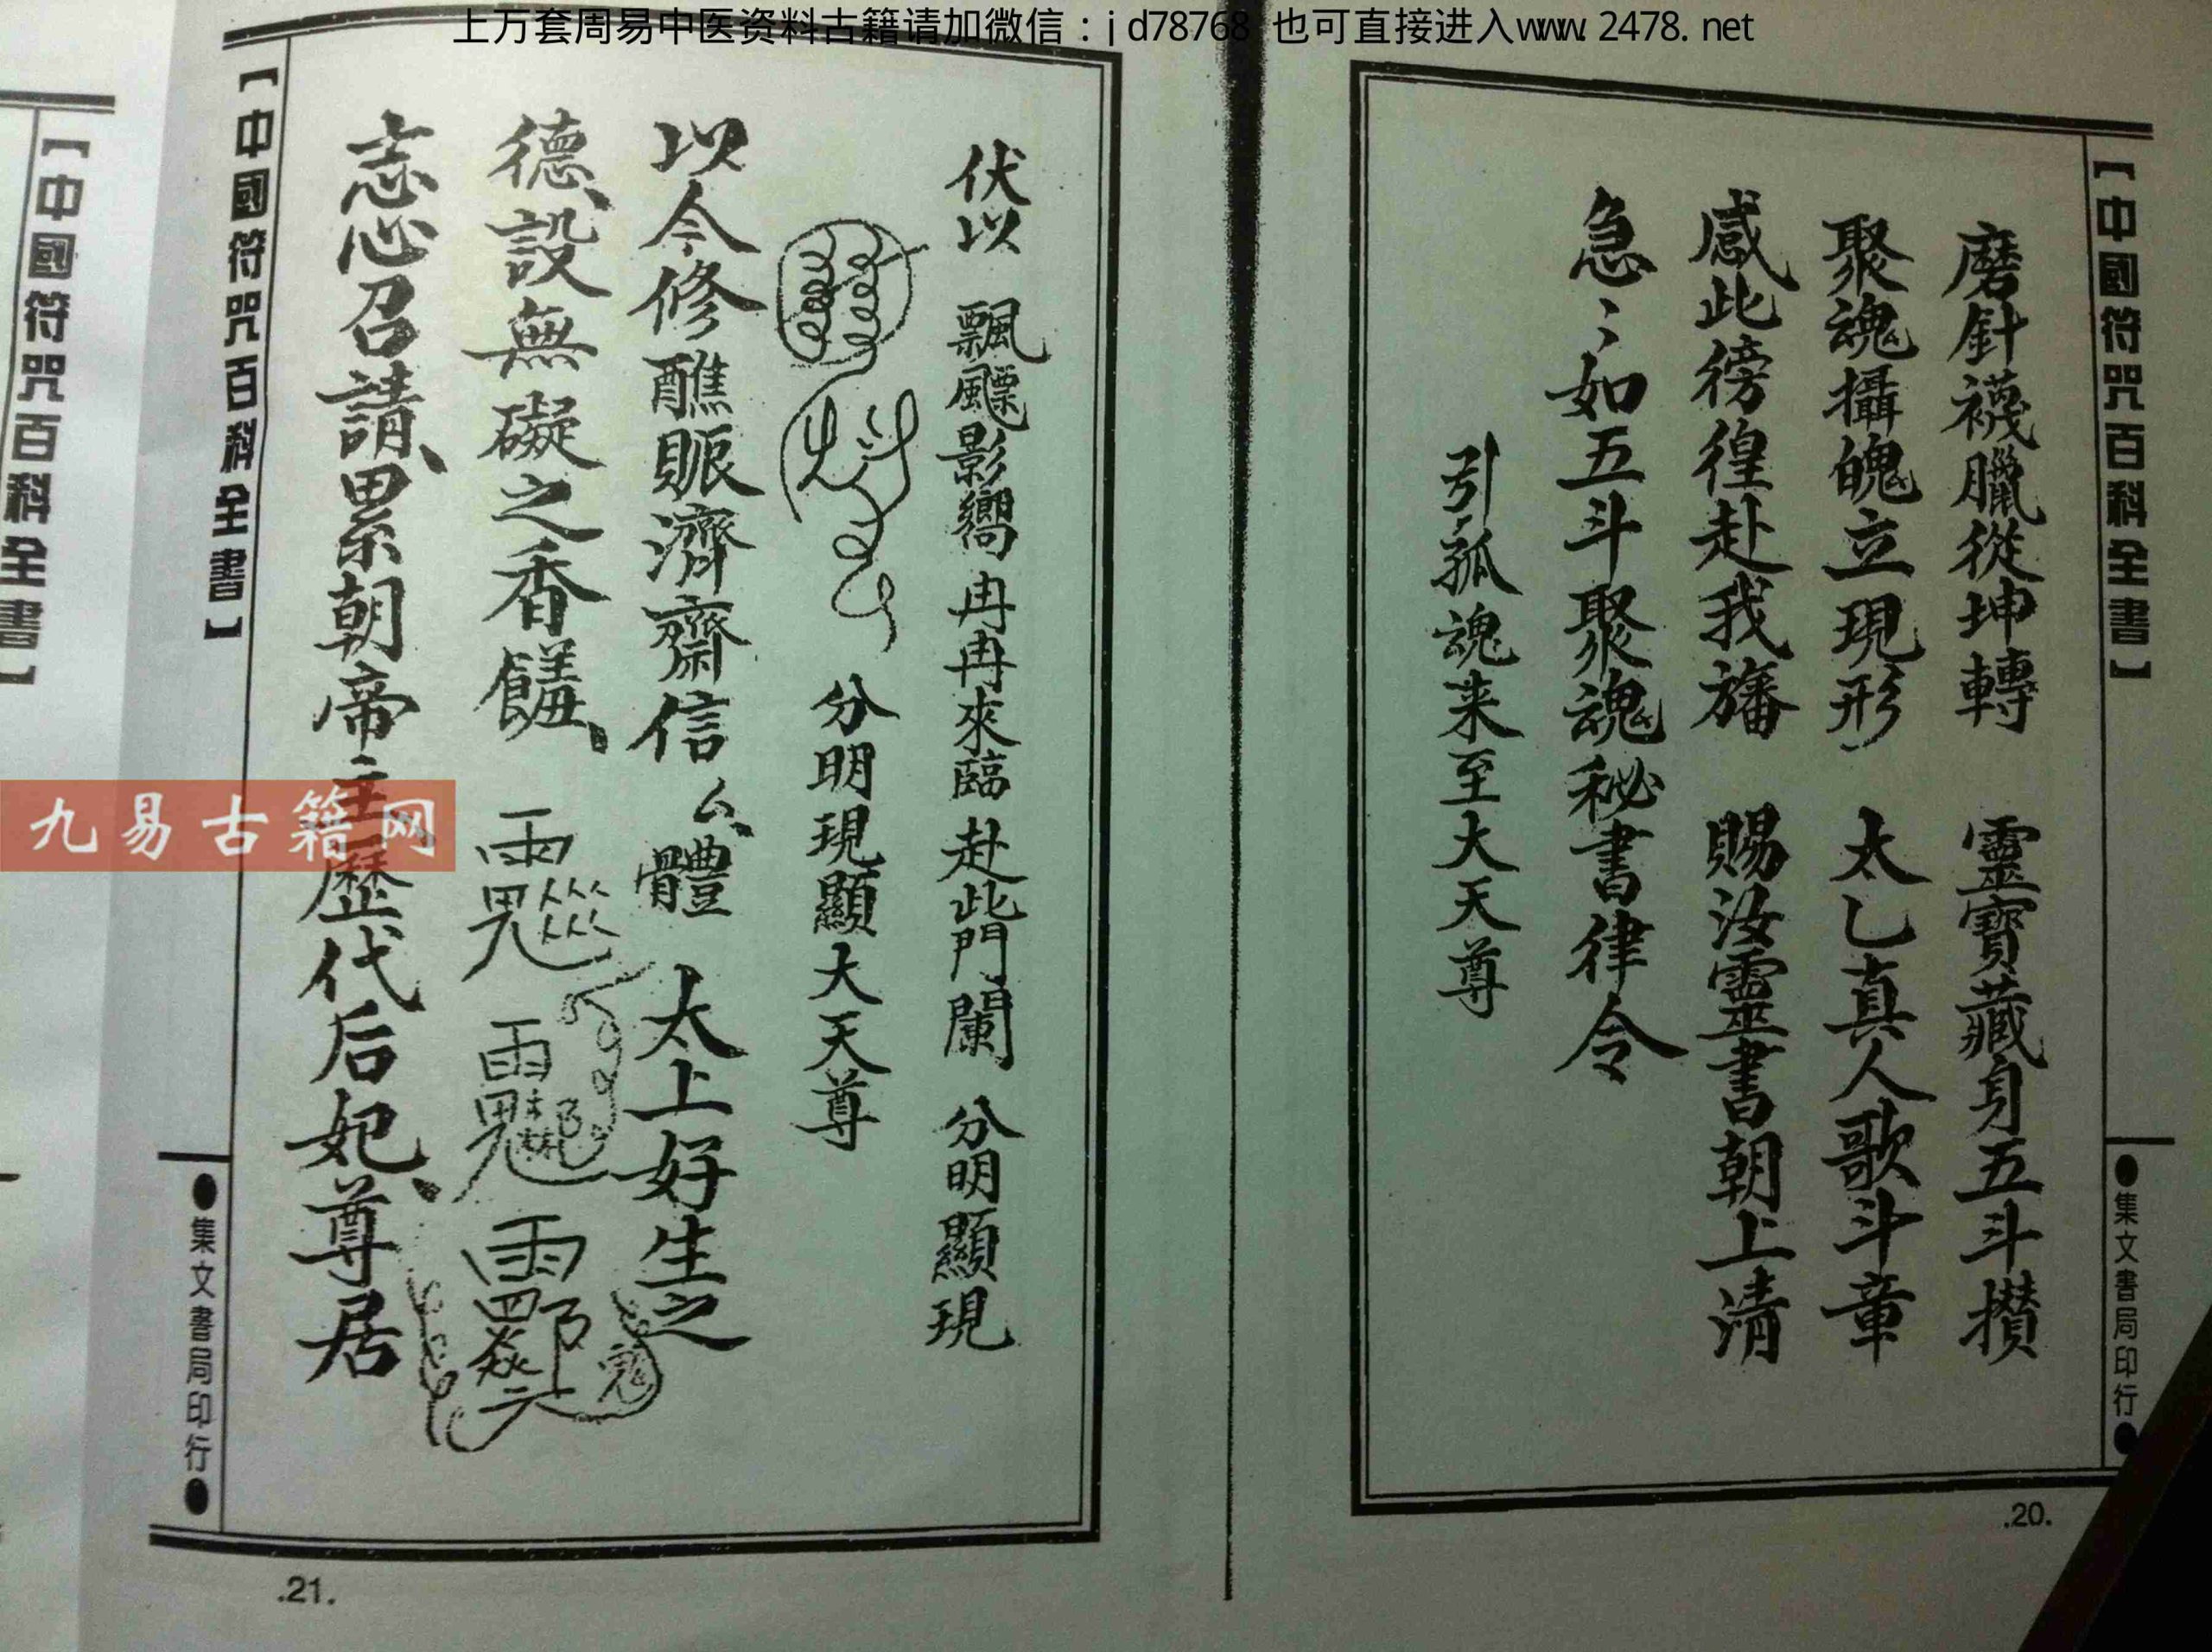 上万套周易中医资料古籍请加微信：jd78768 也可直接进入www.2478.net
【中國符咒百科全書】
●集文書局印行●
磨針襪臘從坤轉 靈寶藏身五斗攢
聚魂攝魄立現形 太乙真人歌斗章
感此徬徨赴我旛 賜汝靈書朝上清
急〻如五斗聚魂秘書律令
引孤魂来至大天尊
.20.
伏以 飄飄影嚮冉冉來臨 赴此門闌 分明顯現
分明現顯大天尊
以今修醮賑濟齋信厶體 太上好生之
德、設無礙之香饈、
志心召請、累朝帝主歷代后妃、尊居
【中國符咒百科全書】
●集文書局印行●
.21.
【中國符咒百科全書】
九易古籍网